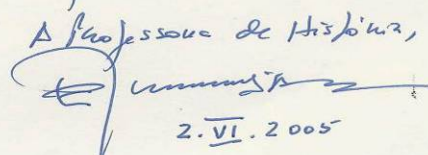 A Professora de História,
2.VI.2005